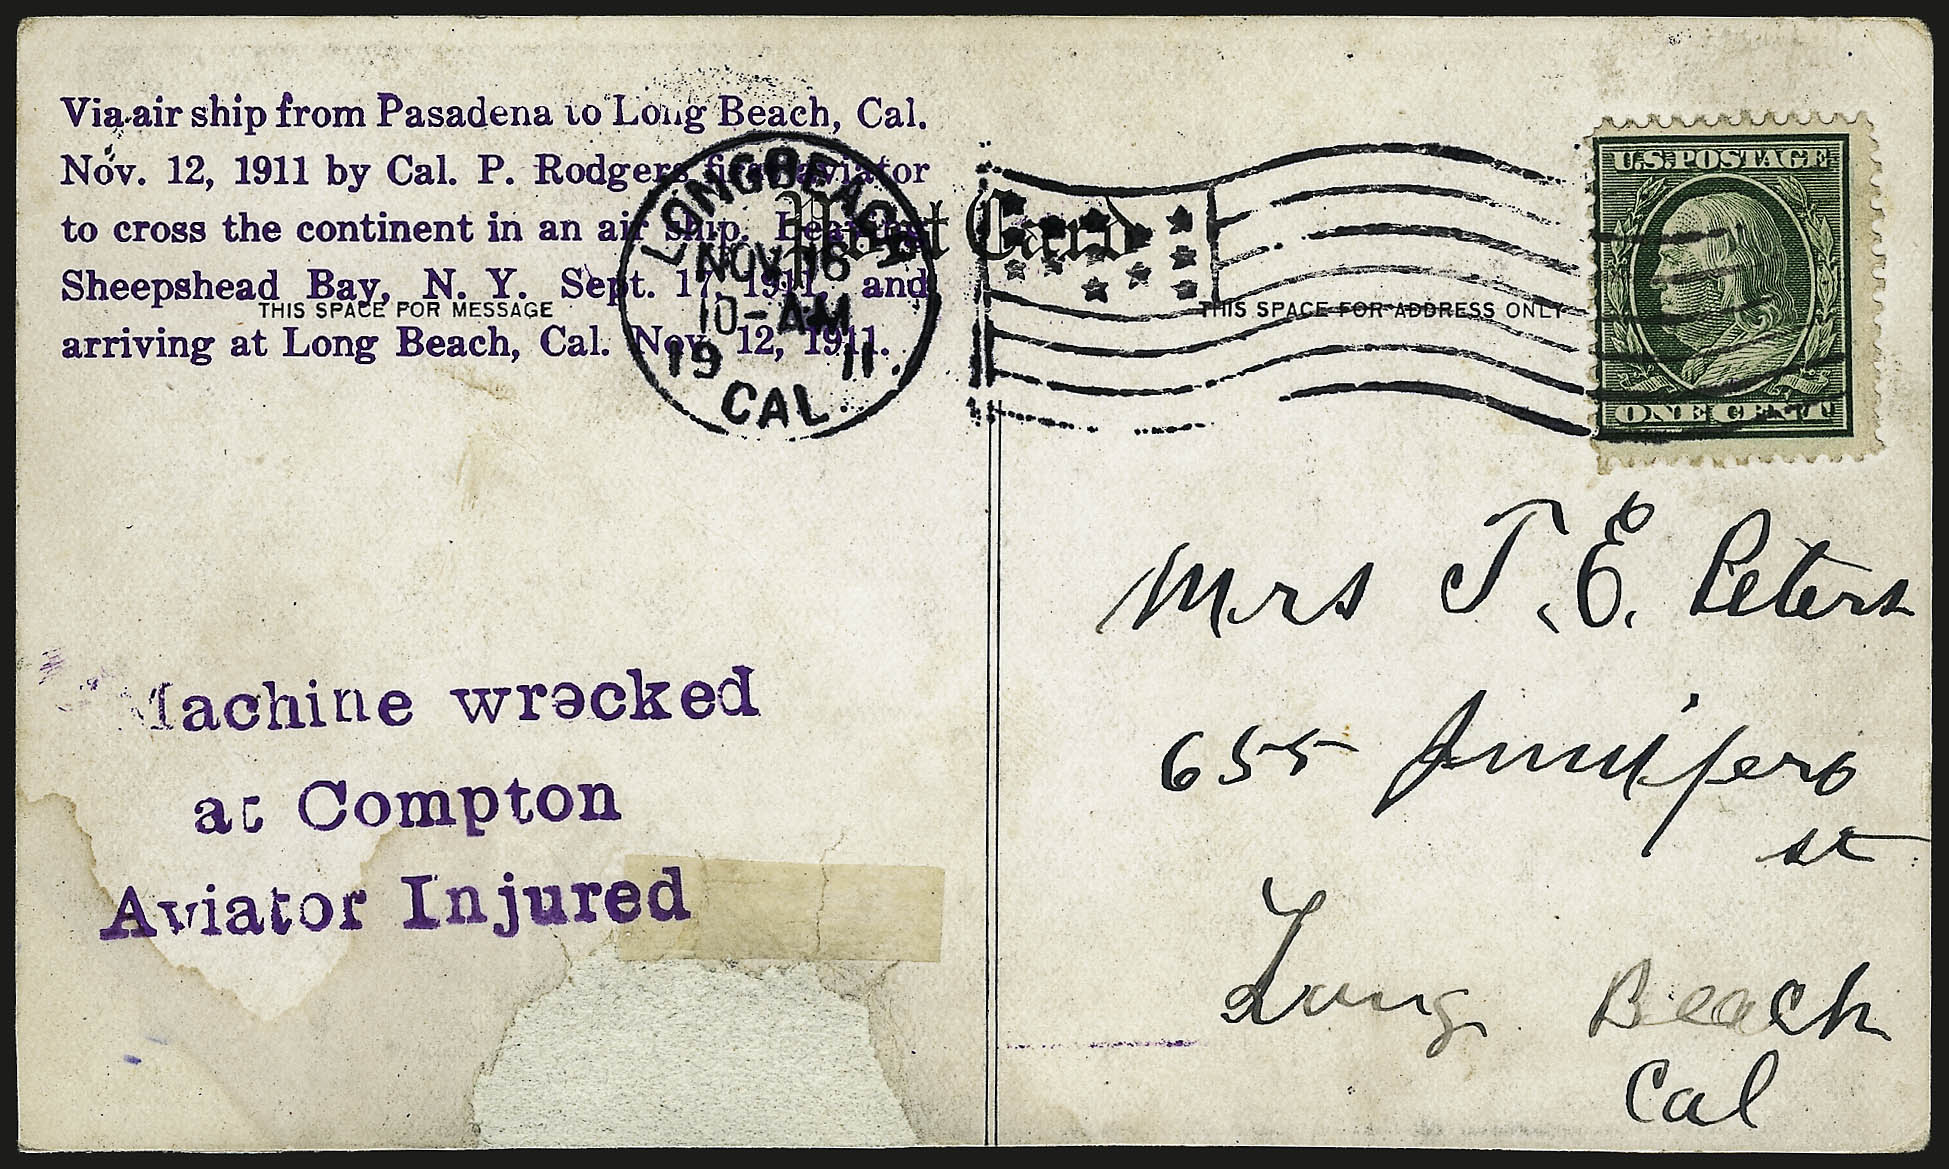 Via air ship from Pasadena to Long Beach, Cal.
Nov. 12, 1911 by Cal. P. Rodgers first aviator
to cross the continent in an air ship. Leaving
Sheepshead Bay, N. Y. Sept. 17, 1911, and
arriving at Long Beach, Cal. Nov. 12, 1911.
THIS SPACE FOR MESSAGE
LONG BEACH
NOV 16
10-AM
19 11.
CAL.
Post Card
THIS SPACE FOR ADDRESS ONLY
U.S. POSTAGE
ONE CENT
Machine wrecked
at Compton
Aviator Injured
Mrs T. E. Peters
655 Junipero
st
Long Beach
Cal